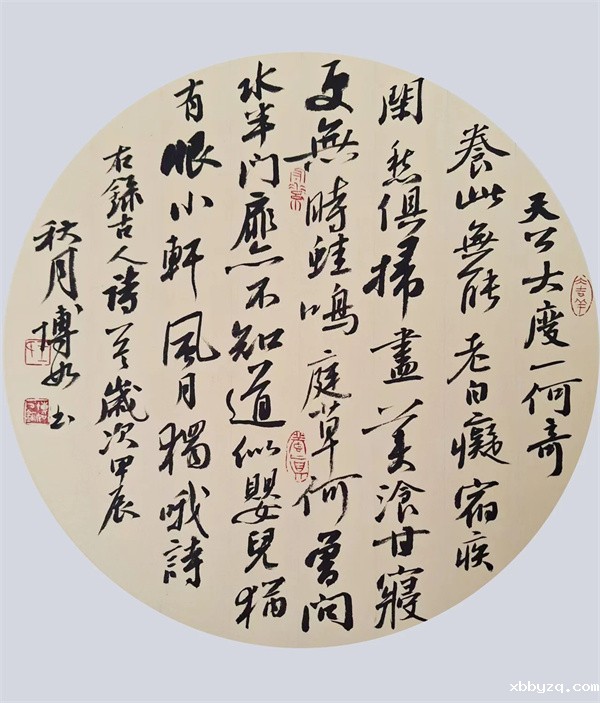 天公大度一何奇
養此無能老白癡宿疾
閑愁俱掃盡美飡甘寢
更無時蛙鳴庭草何曾問
水半門扉亦不知道似嬰兒猶
有恨小軒風月獨哦詩
右錄古人詩一首歲次甲辰
秋月博如書
xbbyzq.com